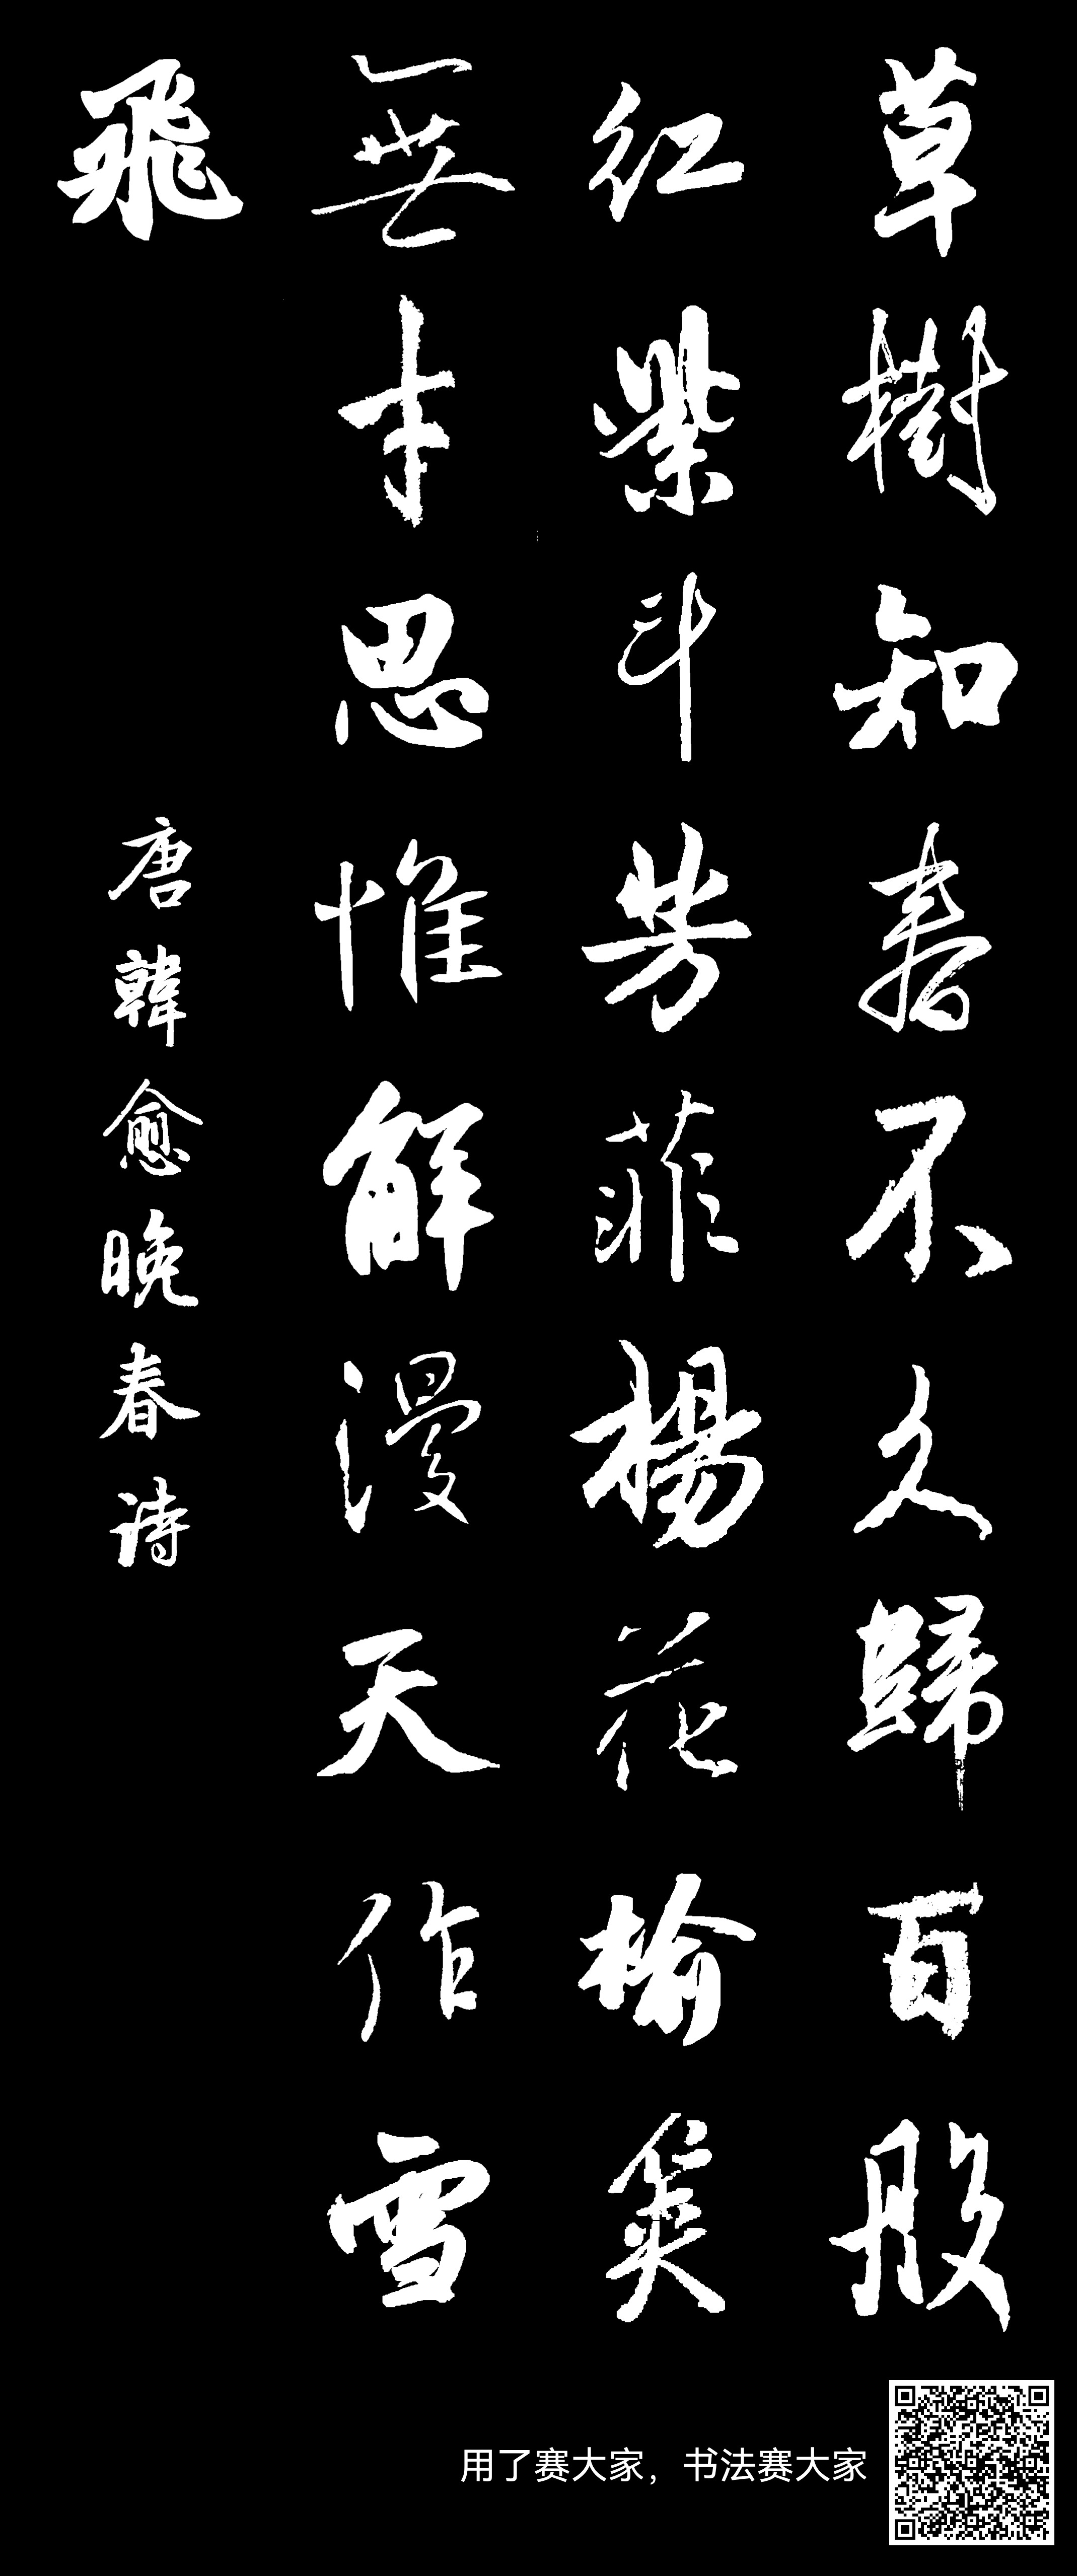 草樹知春不久歸百般
紅紫斗芳菲楊花榆莢
無才思惟解漫天作雪
飛
唐韓愈晚春诗
用了赛大家，书法赛大家